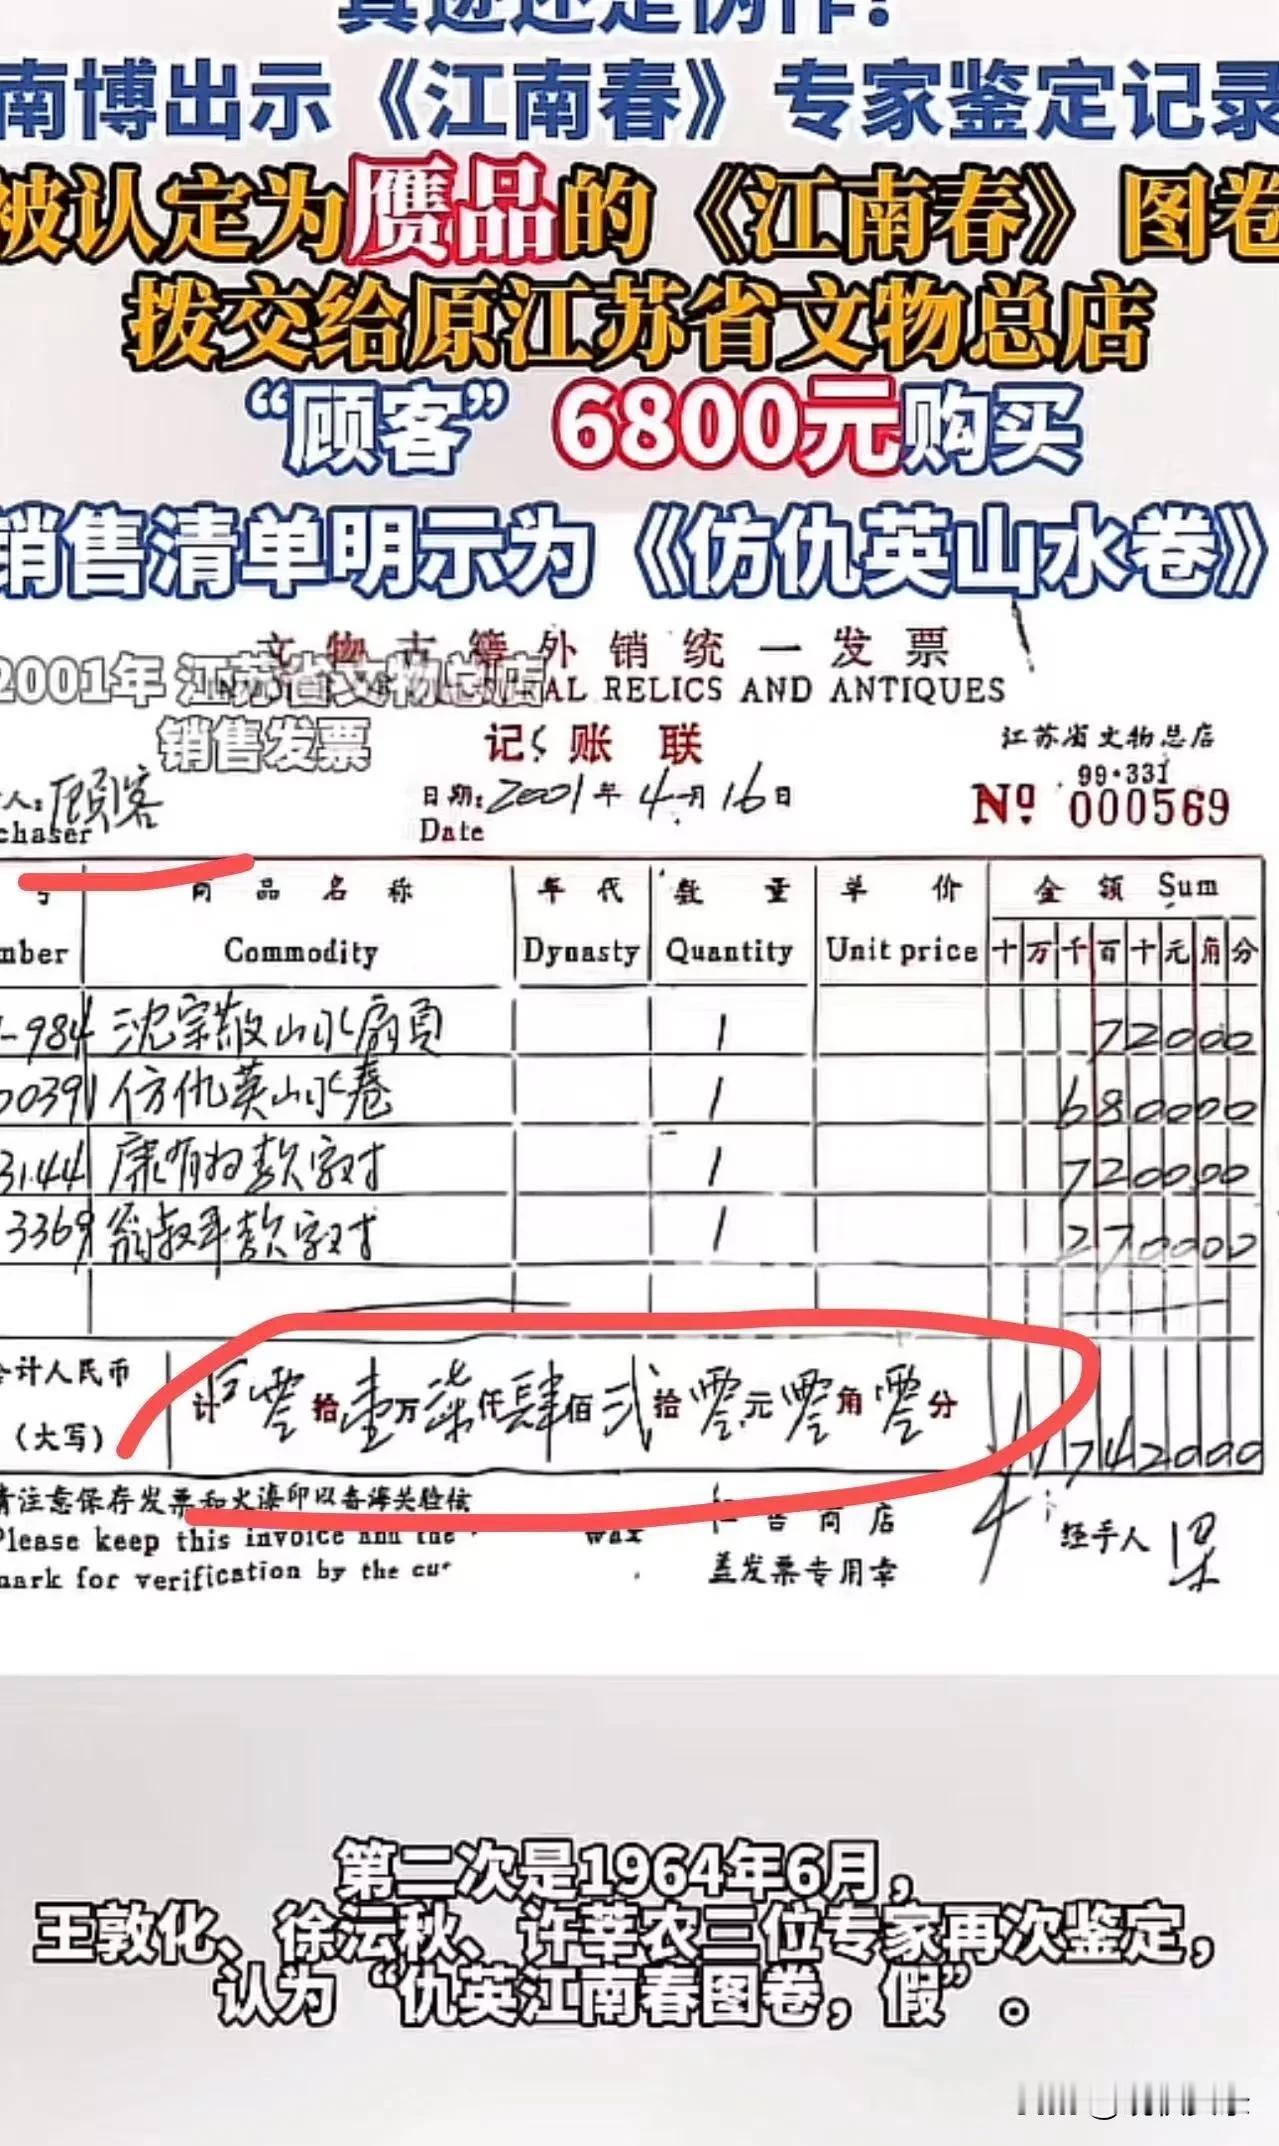 真迹还是伪作？
南博出示《江南春》专家鉴定记录
被认定为赝品的《江南春》图卷
拨交给原江苏省文物总店
“顾客”6800元购买
销售清单明示为《仿仇英山水卷》
文物古籍外销统一发票
RAL RELICS AND ANTIQUES
2001年 江苏省文物总店
销售发票
记账联
江苏省文物总店
99·331
人：顾客
chaser
日期：2001年4月16日
Date
Nº 000569
号 商品名称 年代 数量 单价 金额 Sum
mber Commodity Dynasty Quantity Unit price 十万千百十元角分
-984 沈宗敬山水扇页 1 72000
00391 仿仇英山水卷 1 680000
3144 康有为款字对 1 720000
3369 翁叔平款字对 1 270000
计人民币 计 零拾壹万柒仟肆佰贰拾零元零角零分
（大写） 1742000
请注意保存发票和火漆印以备海关验
Please keep this invoice and the wax
mark for verification by the cu
售商店
盖发票专用章
经手人
第二次是1964年6月，
王敦化、徐沄秋、许莘农三位专家再次鉴定，
认为“仇英江南春图卷，假”。